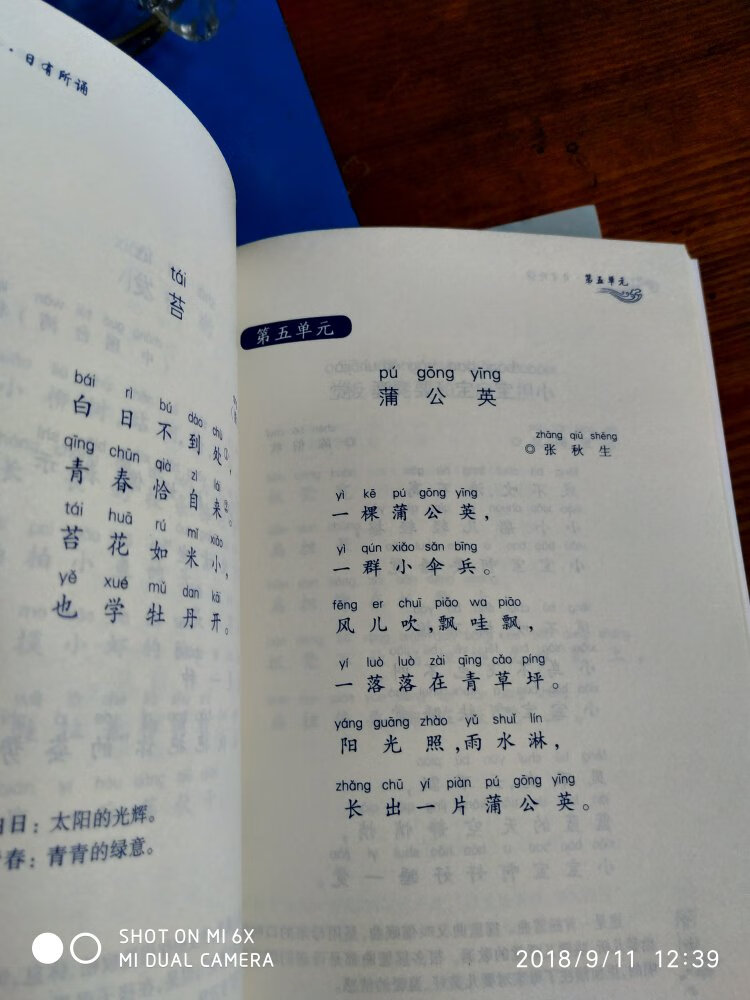 ·日有所诵
tái
苔
bái rì bú dào chù
白日不到处①,
qīng chūn qià zì lái
青春恰自来②。
tái huā rú mǐ xiǎo
苔花如米小,
yě xué mǔ dan kāi
也学牡丹开。
白日：太阳的光辉。
青春：青青的绿意。
第五单元
第五单元
pú gōng yīng
蒲公英
zhāng qiū shēng
◎张秋生
yì kē pú gōng yīng
一棵蒲公英,
yì qún xiǎo sǎn bīng
一群小伞兵。
fēng er chuī piāo wa piāo
风儿吹,飘哇飘,
yí luò luò zài qīng cǎo píng
一落落在青草坪。
yáng guāng zhào yǔ shuǐ lín
阳光照,雨水淋,
zhǎng chū yí piàn pú gōng yīng
长出一片蒲公英。
SHOT ON MI 6X
MI DUAL CAMERA
2018/9/11 12:39